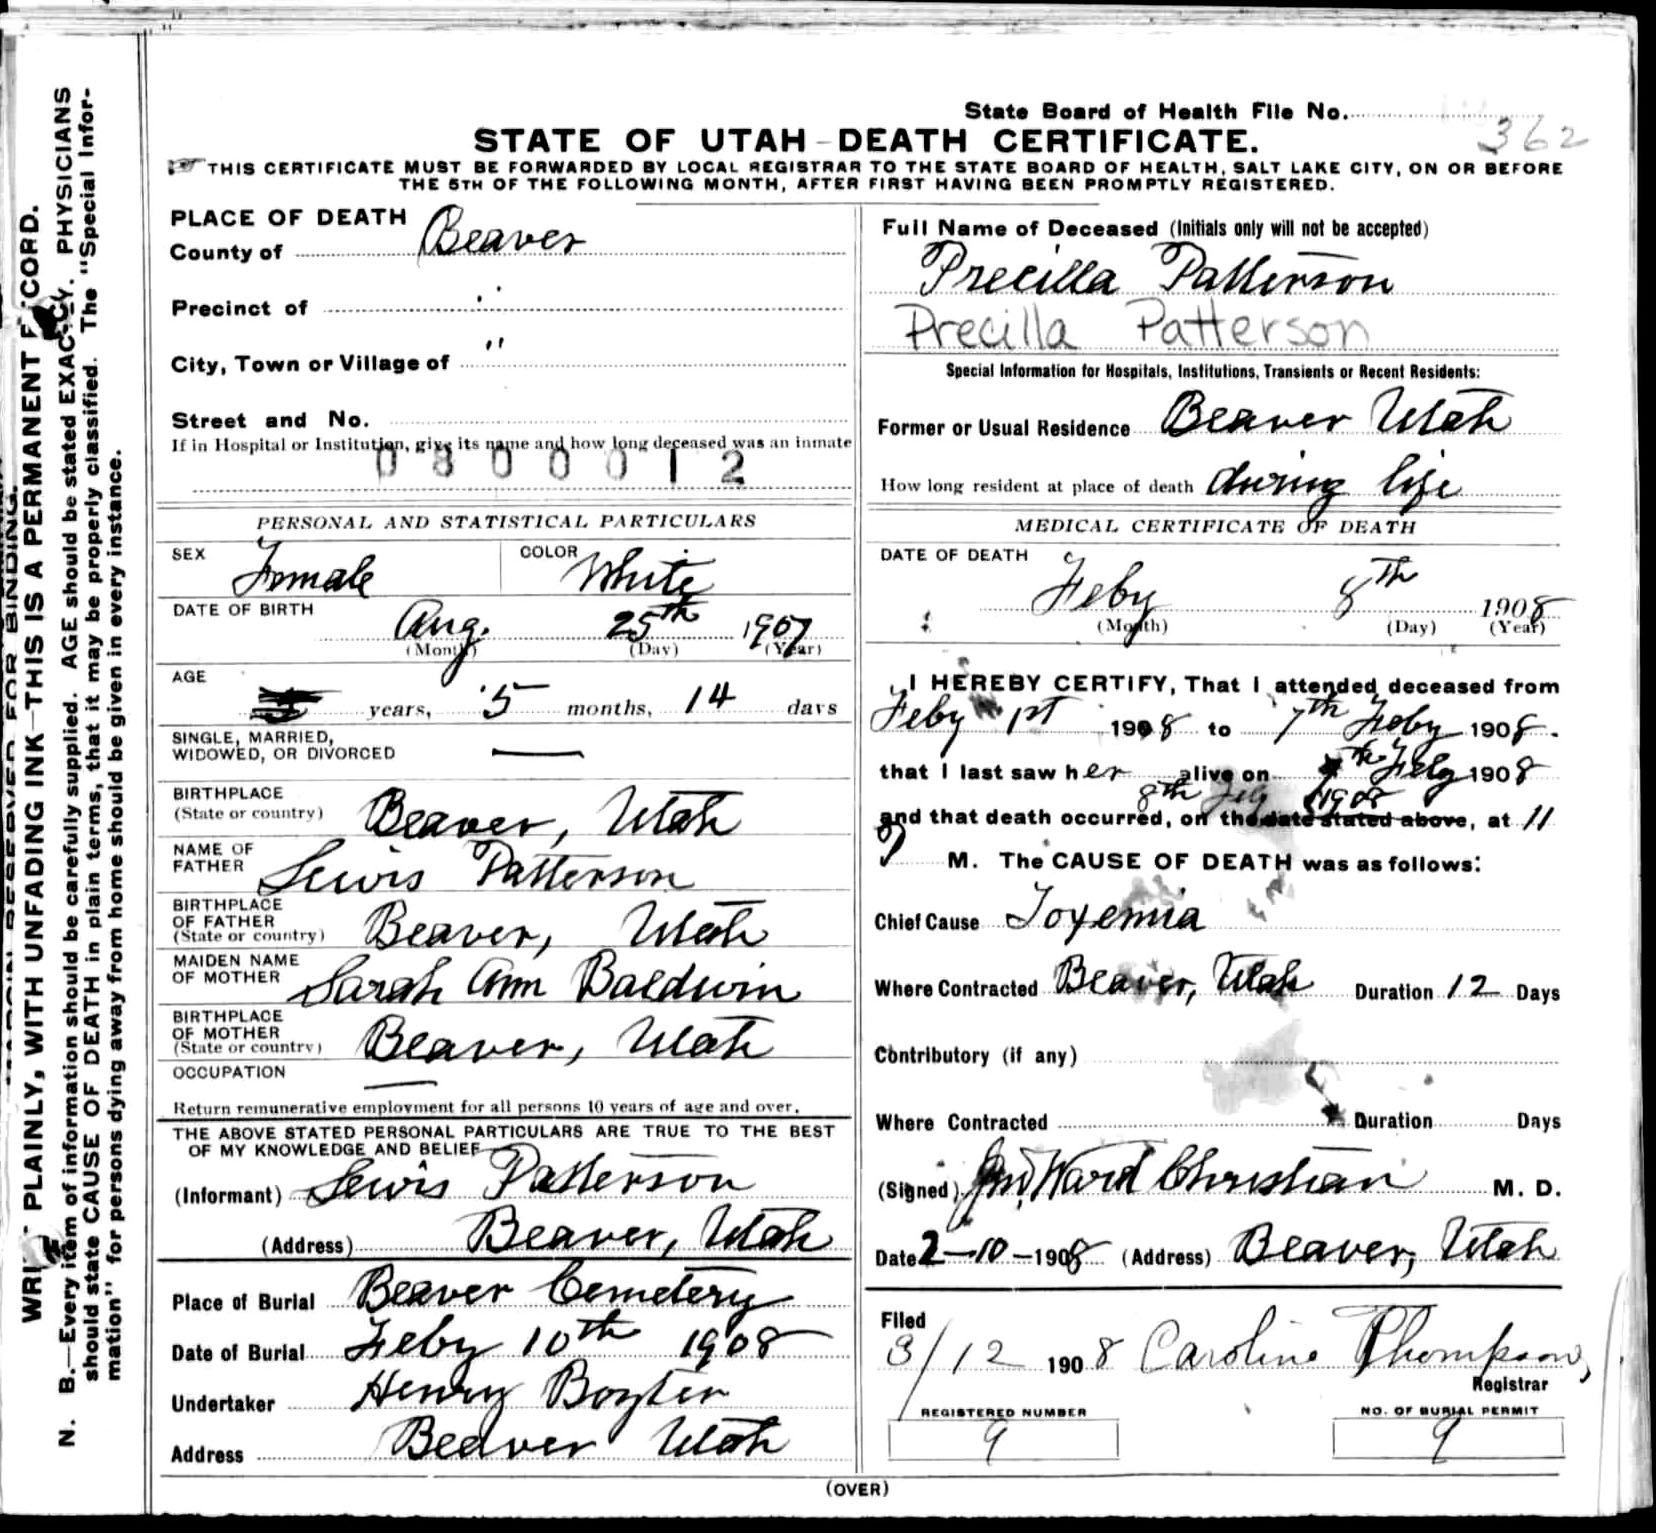 State Board of Health File No. 362
STATE OF UTAH - DEATH CERTIFICATE.
THIS CERTIFICATE MUST BE FORWARDED BY LOCAL REGISTRAR TO THE STATE BOARD OF HEALTH, SALT LAKE CITY, ON OR BEFORE
THE 5TH OF THE FOLLOWING MONTH, AFTER FIRST HAVING BEEN PROMPTLY REGISTERED.
PLACE OF DEATH
County of Beaver
Precinct of "
City, Town or Village of "
Street and No.
If in Hospital or Institution, give its name and how long deceased was an inmate
0800012
PERSONAL AND STATISTICAL PARTICULARS
SEX Female COLOR White
DATE OF BIRTH
Aug. 25th 1907
(Month) (Day) (Year)
AGE
years, 5 months, 14 days
SINGLE, MARRIED,
WIDOWED, OR DIVORCED —
BIRTHPLACE
(State or country) Beaver, Utah
NAME OF
FATHER Lewis Patterson
BIRTHPLACE
OF FATHER
(State or country) Beaver, Utah
MAIDEN NAME
OF MOTHER Sarah Ann Baldwin
BIRTHPLACE
OF MOTHER
(State or country) Beaver, Utah
OCCUPATION —
Return remunerative employment for all persons 10 years of age and over.
THE ABOVE STATED PERSONAL PARTICULARS ARE TRUE TO THE BEST
OF MY KNOWLEDGE AND BELIEF
(Informant) Lewis Patterson
(Address) Beaver, Utah
Place of Burial Beaver Cemetery
Date of Burial Feby 10th 1908
Undertaker Henry Boyter
Address Beaver Utah
Full Name of Deceased (Initials only will not be accepted)
Precilla Patterson
Precilla Patterson
Special Information for Hospitals, Institutions, Transients or Recent Residents:
Former or Usual Residence Beaver Utah
How long resident at place of death during life
MEDICAL CERTIFICATE OF DEATH
DATE OF DEATH
Feby 8th 1908
(Month) (Day) (Year)
I HEREBY CERTIFY, That I attended deceased from
Feby 1st 1908 to 7th Feby 1908.
that I last saw her alive on th Feby 1908
8th Feby 1908
and that death occurred, on the date stated above, at 11
P M. The CAUSE OF DEATH was as follows:
Chief Cause Toxemia
Where Contracted Beaver, Utah Duration 12 Days
Contributory (if any)
Where Contracted Duration Days
(Signed) Ward Christian M. D.
Date 2-10-1908 (Address) Beaver, Utah
Filed
3/12 1908 Caroline Thompson,
Registrar
REGISTERED NUMBER NO. OF BURIAL PERMIT
9 9
(OVER)
MARGIN RESERVED FOR BINDING.
WRITE PLAINLY, WITH UNFADING INK—THIS IS A PERMANENT RECORD.
N. B.—Every item of information should be carefully supplied. AGE should be stated EXACTLY. PHYSICIANS
should state CAUSE OF DEATH in plain terms, that it may be properly classified. The "Special Infor-
mation" for persons dying away from home should be given in every instance.